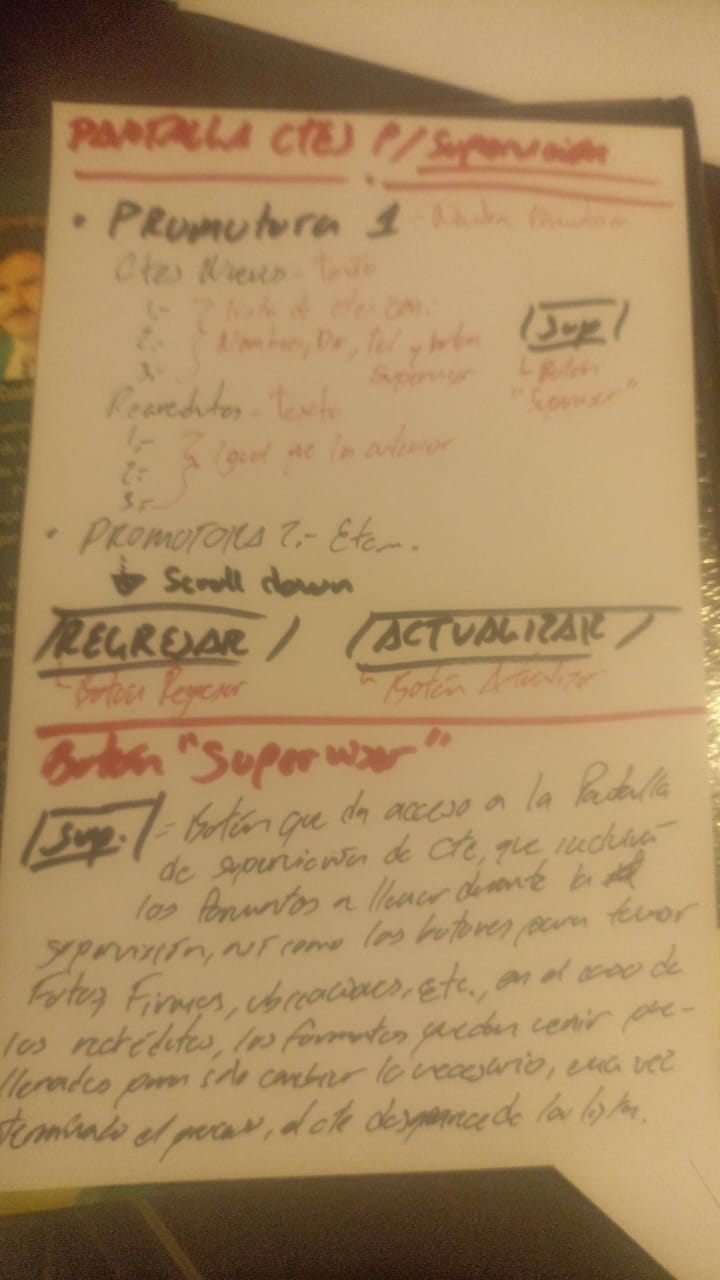 PANTALLA CTES P/ Supervisión
• PROMOTORA 1 - Nombre Promotora
Ctes Nuevos - Texto
1.- Lista de ctes con:
2.- Nombre, Dir, Tel y botón
3.- Supervisor
Sup
Botón
"Supervisor"
Recreditos - Texto
1.- Igual que la anterior
2.-
3.-
• PROMOTORA 2.- Etc...
Scroll down
REGRESAR
ACTUALIZAR
Botón Regresar
Botón Actualizar
Botón "Supervisar"
Sup. = Botón que da acceso a la Pantalla
de supervisión de cte, que incluirá
los formatos a llenar durante la
supervisión, así como los botones para tomar
Fotos, Firmas, ubicaciones, etc., en el caso de
los recréditos, los formatos pueden venir pre-
llenados para solo cambiar lo necesario, una vez
terminado el proceso, el cte desaparece de la lista.